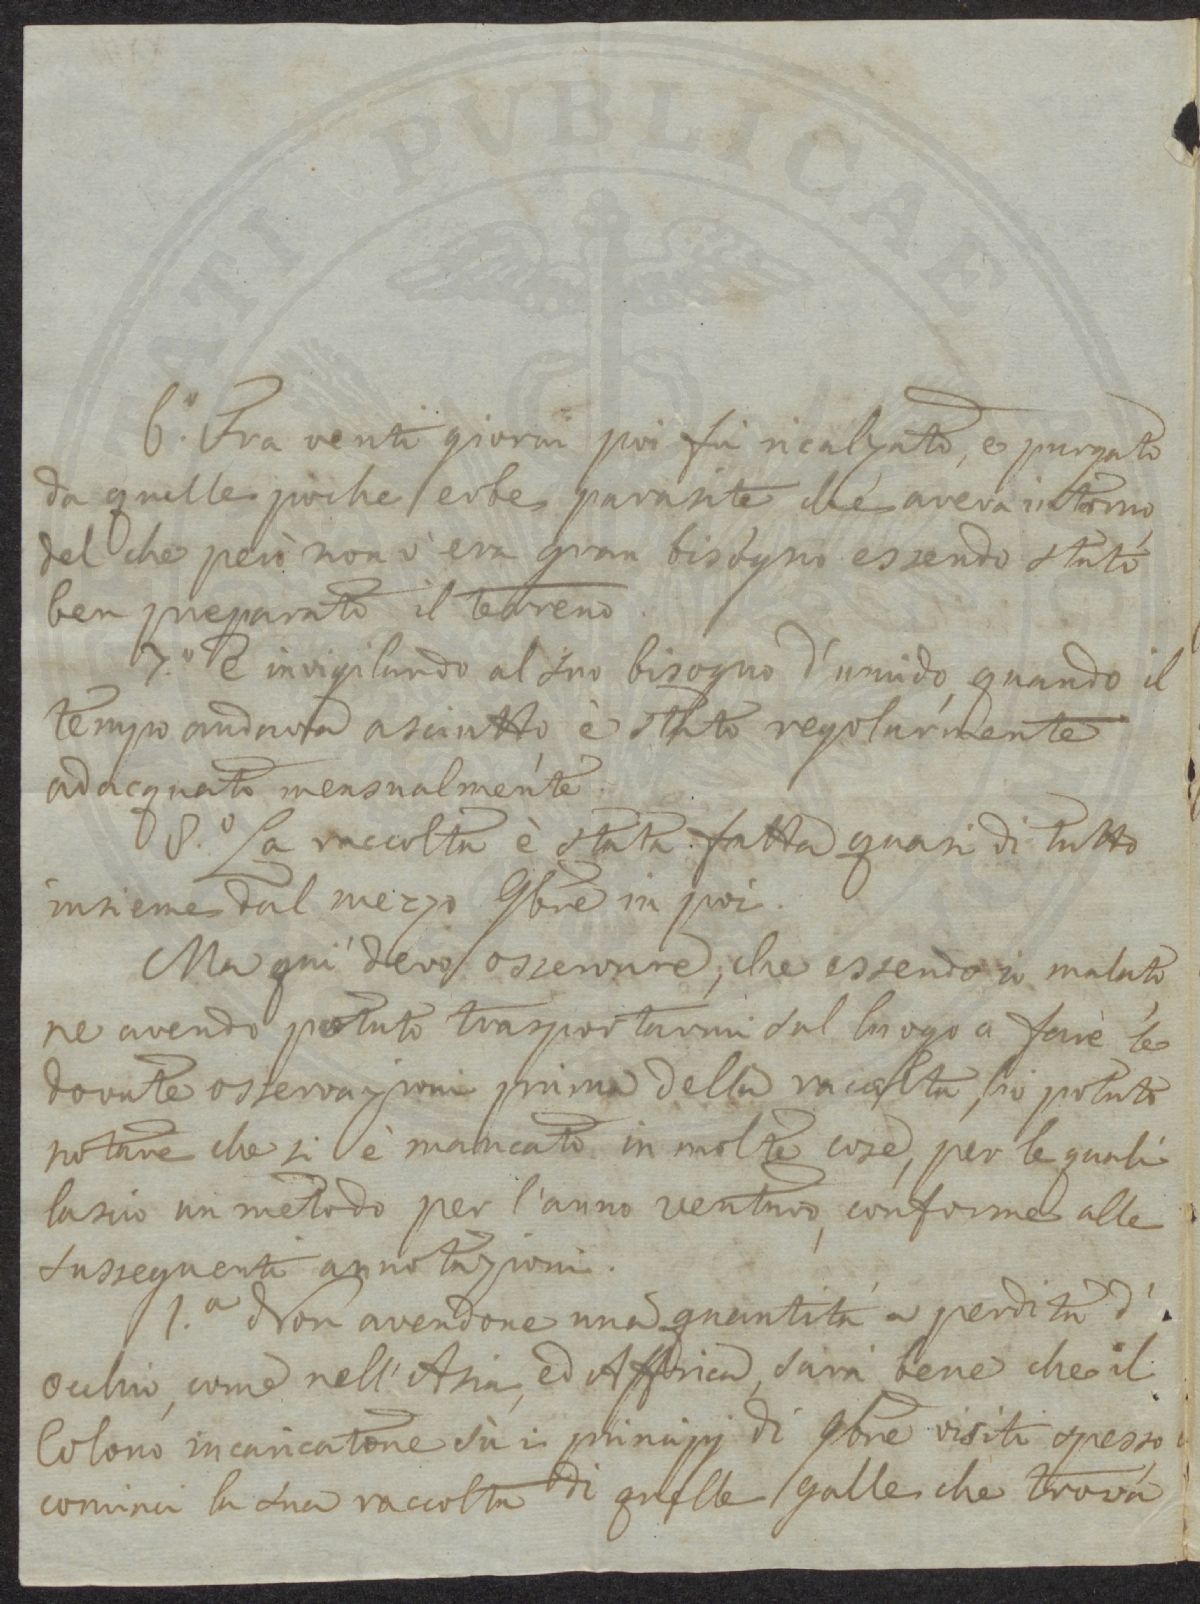 ATI PVBLICAE
6.° Fra venti giorni poi fu ricalzato, e purgato
da quelle poche erbe parasite che aveva intorno,
del che però non v'era gran bisogno essendo stato
ben preparato il terreno.
7.° E invigilando al suo bisogno d'umido, quando il
tempo andava asciutto, è stato regolarmente
adacquato mensualmente.
8.° La raccolta è stata fatta quasi di tutto
insieme dal mezzo 9bre in poi.
Ma qui devo osservare, che essendo io malato
ne avendo potuto trasportarmi sul luogo a fare le
dovute osservazioni prima della raccolta, ho potuto
notare che si è mancato in molte cose, per le quali
lascio un metodo per l'anno venturo, conforme alle
susseguenti annotazioni.
1.a Non avendone una quantità a perdita d'
occhio, come nell'Asia, ed Affrica, sarà bene che il
Colono incaricatone sù i principj di 9bre visiti spesso
cominci la sua raccolta di quelle galle che trova